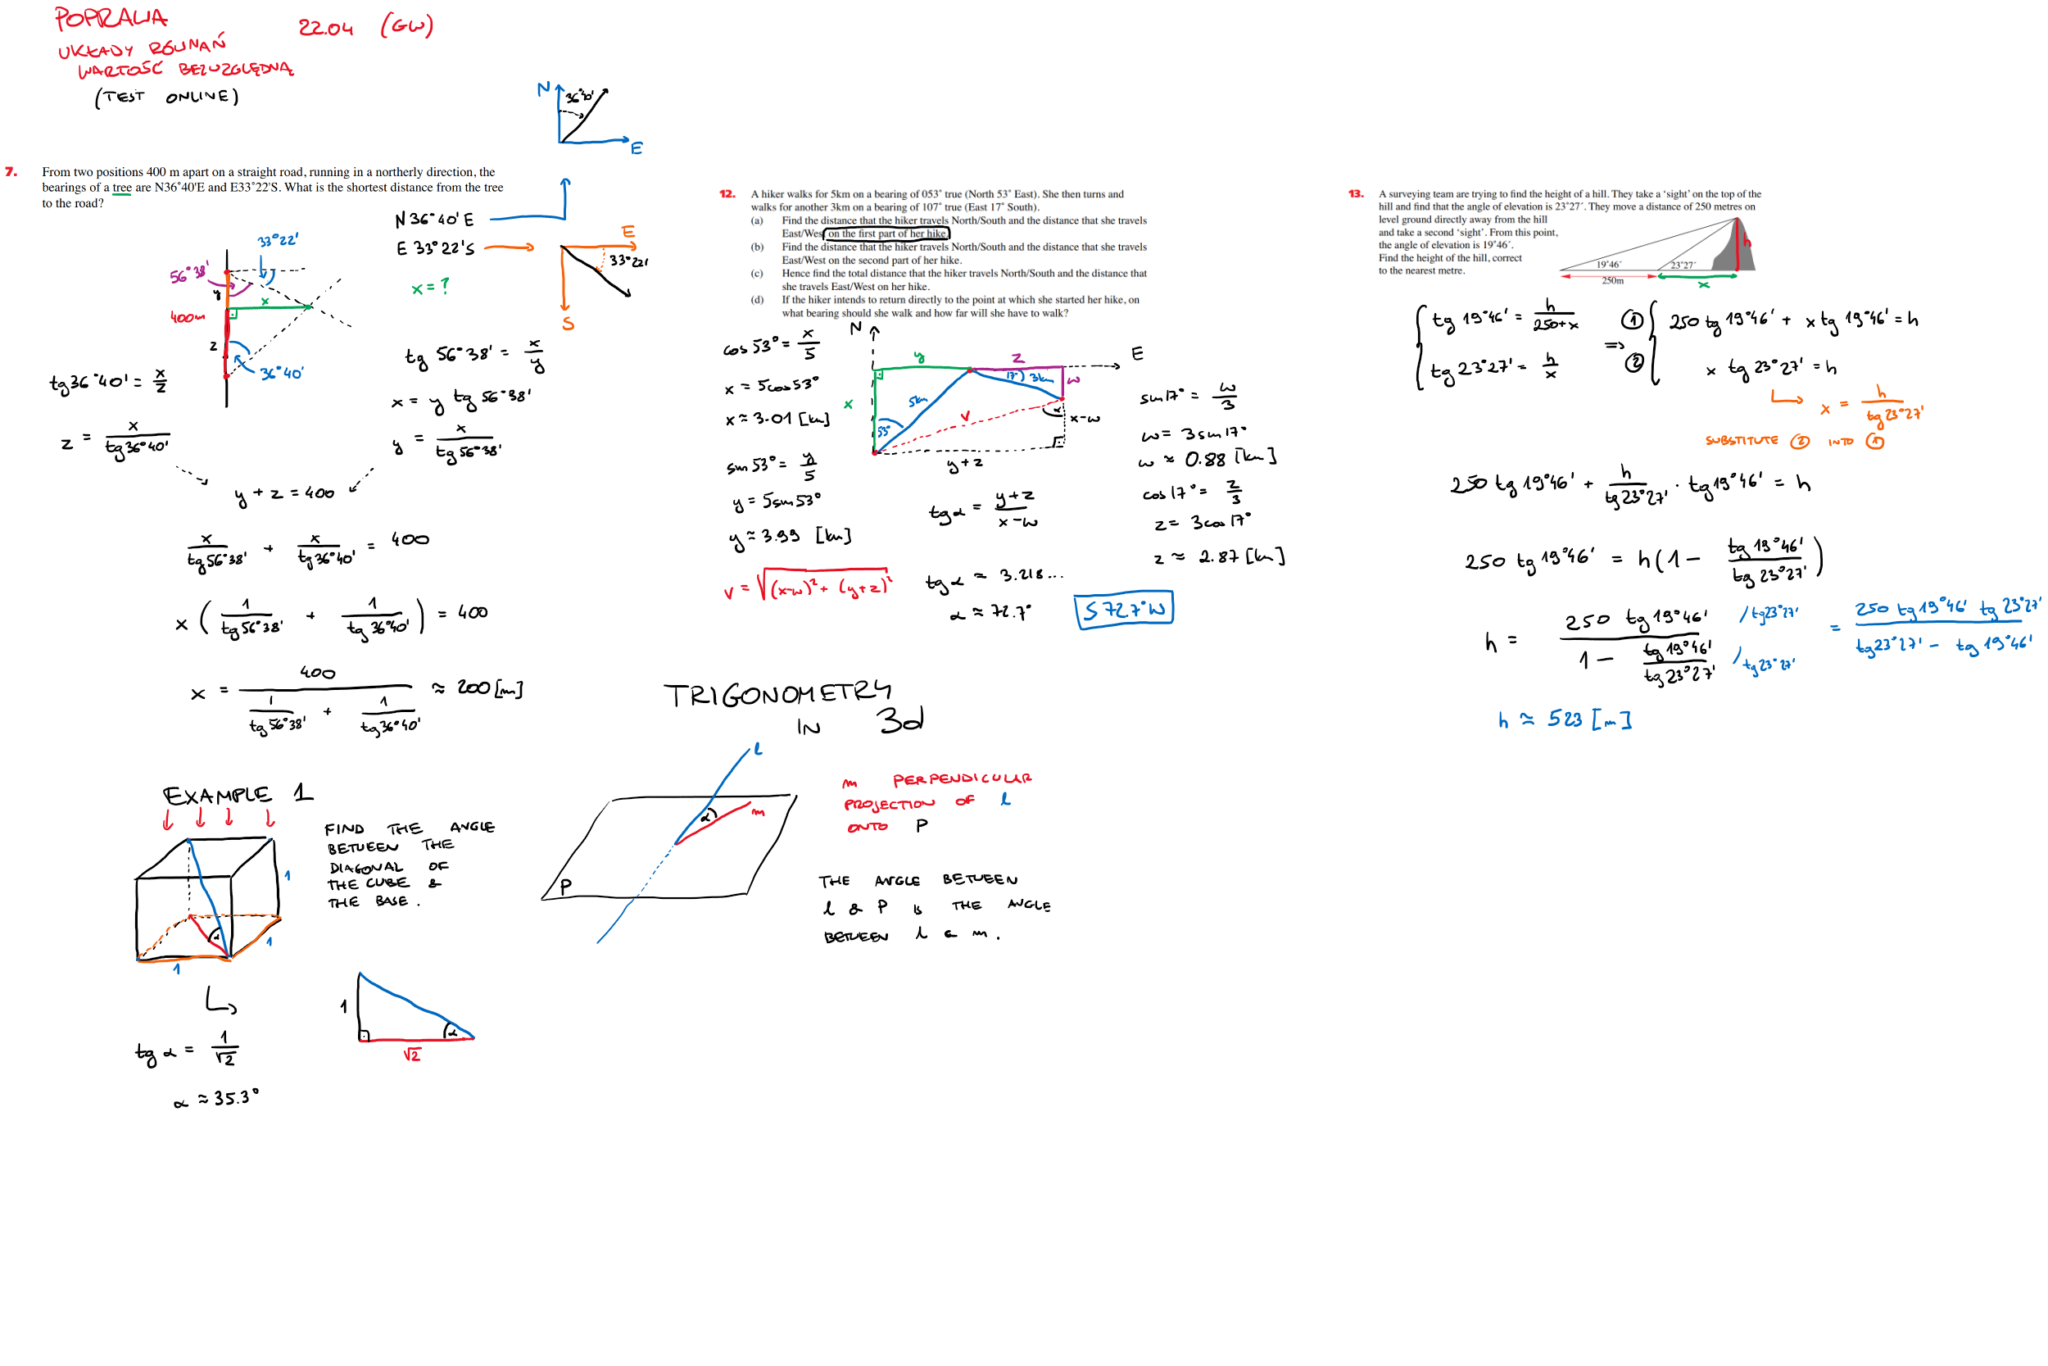 POPRAWA
22.04 (GW)
UKŁADY RÓWNAŃ
WARTOŚĆ BEZWZGLĘDNA
(TEST ONLINE)
N
36°40'
E
7. From two positions 400 m apart on a straight road, running in a northerly direction, the
bearings of a tree are N36°40'E and E33°22'S. What is the shortest distance from the tree
to the road?
N 36°40' E
E 33°22' S
x = ?
E
33°22'
S
33°22'
56°38'
y
x
400m
z
36°40'
tg 36°40' = x/z
z = x / tg 36°40'
tg 56°38' = x/y
x = y tg 56°38'
y = x / tg 56°38'
y + z = 400
x / tg 56°38' + x / tg 36°40' = 400
x ( 1 / tg 56°38' + 1 / tg 36°40' ) = 400
x = 400 / ( 1 / tg 56°38' + 1 / tg 36°40' ) ≈ 200 [m]
12. A hiker walks for 5km on a bearing of 053° true (North 53° East). She then turns and
walks for another 3km on a bearing of 107° true (East 17° South).
(a) Find the distance that the hiker travels North/South and the distance that she travels
East/West on the first part of her hike.
(b) Find the distance that the hiker travels North/South and the distance that she travels
East/West on the second part of her hike.
(c) Hence find the total distance that the hiker travels North/South and the distance that
she travels East/West on her hike.
(d) If the hiker intends to return directly to the point at which she started her hike, on
what bearing should she walk and how far will she have to walk?
cos 53° = x/5
x = 5cos 53°
x ≈ 3.01 [km]
sin 53° = y/5
y = 5sin 53°
y ≈ 3.99 [km]
v = √((x-w)² + (y+z)²)
N
E
y
z
17°
3km
w
5km
x
v
α
x-w
53°
y+z
tg α = (y+z) / (x-w)
tg α ≈ 3.218...
α ≈ 72.7°
S 72.7° W
sin 17° = w/3
w = 3 sin 17°
w ≈ 0.88 [km]
cos 17° = z/3
z = 3cos 17°
z ≈ 2.87 [km]
13. A surveying team are trying to find the height of a hill. They take a 'sight' on the top of the
hill and find that the angle of elevation is 23°27´. They move a distance of 250 metres on
level ground directly away from the hill
and take a second 'sight'. From this point,
the angle of elevation is 19°46´.
Find the height of the hill, correct
to the nearest metre.
h
19°46´
23°27´
250m
x
tg 19°46' = h / (250+x)
tg 23°27' = h/x
=>
① 250 tg 19°46' + x tg 19°46' = h
② x tg 23°27' = h
x = h / tg 23°27'
SUBSTITUTE ② INTO ①
250 tg 19°46' + h / tg 23°27' · tg 19°46' = h
250 tg 19°46' = h (1 - tg 19°46' / tg 23°27')
h = 250 tg 19°46' / (1 - tg 19°46' / tg 23°27') /tg 23°27' /tg 23°27' = 250 tg 19°46' tg 23°27' / (tg 23°27' - tg 19°46')
h ≈ 523 [m]
TRIGONOMETRY
IN 3d
l
m
α
P
m PERPENDICULAR
PROJECTION OF l
ONTO P
THE ANGLE BETWEEN
l & P IS THE ANGLE
BETWEEN l & m.
EXAMPLE 1
FIND THE ANGLE
BETWEEN THE
DIAGONAL OF
THE CUBE &
THE BASE.
1
α
1
1
tg α = 1/√2
α ≈ 35.3°
1
α
√2